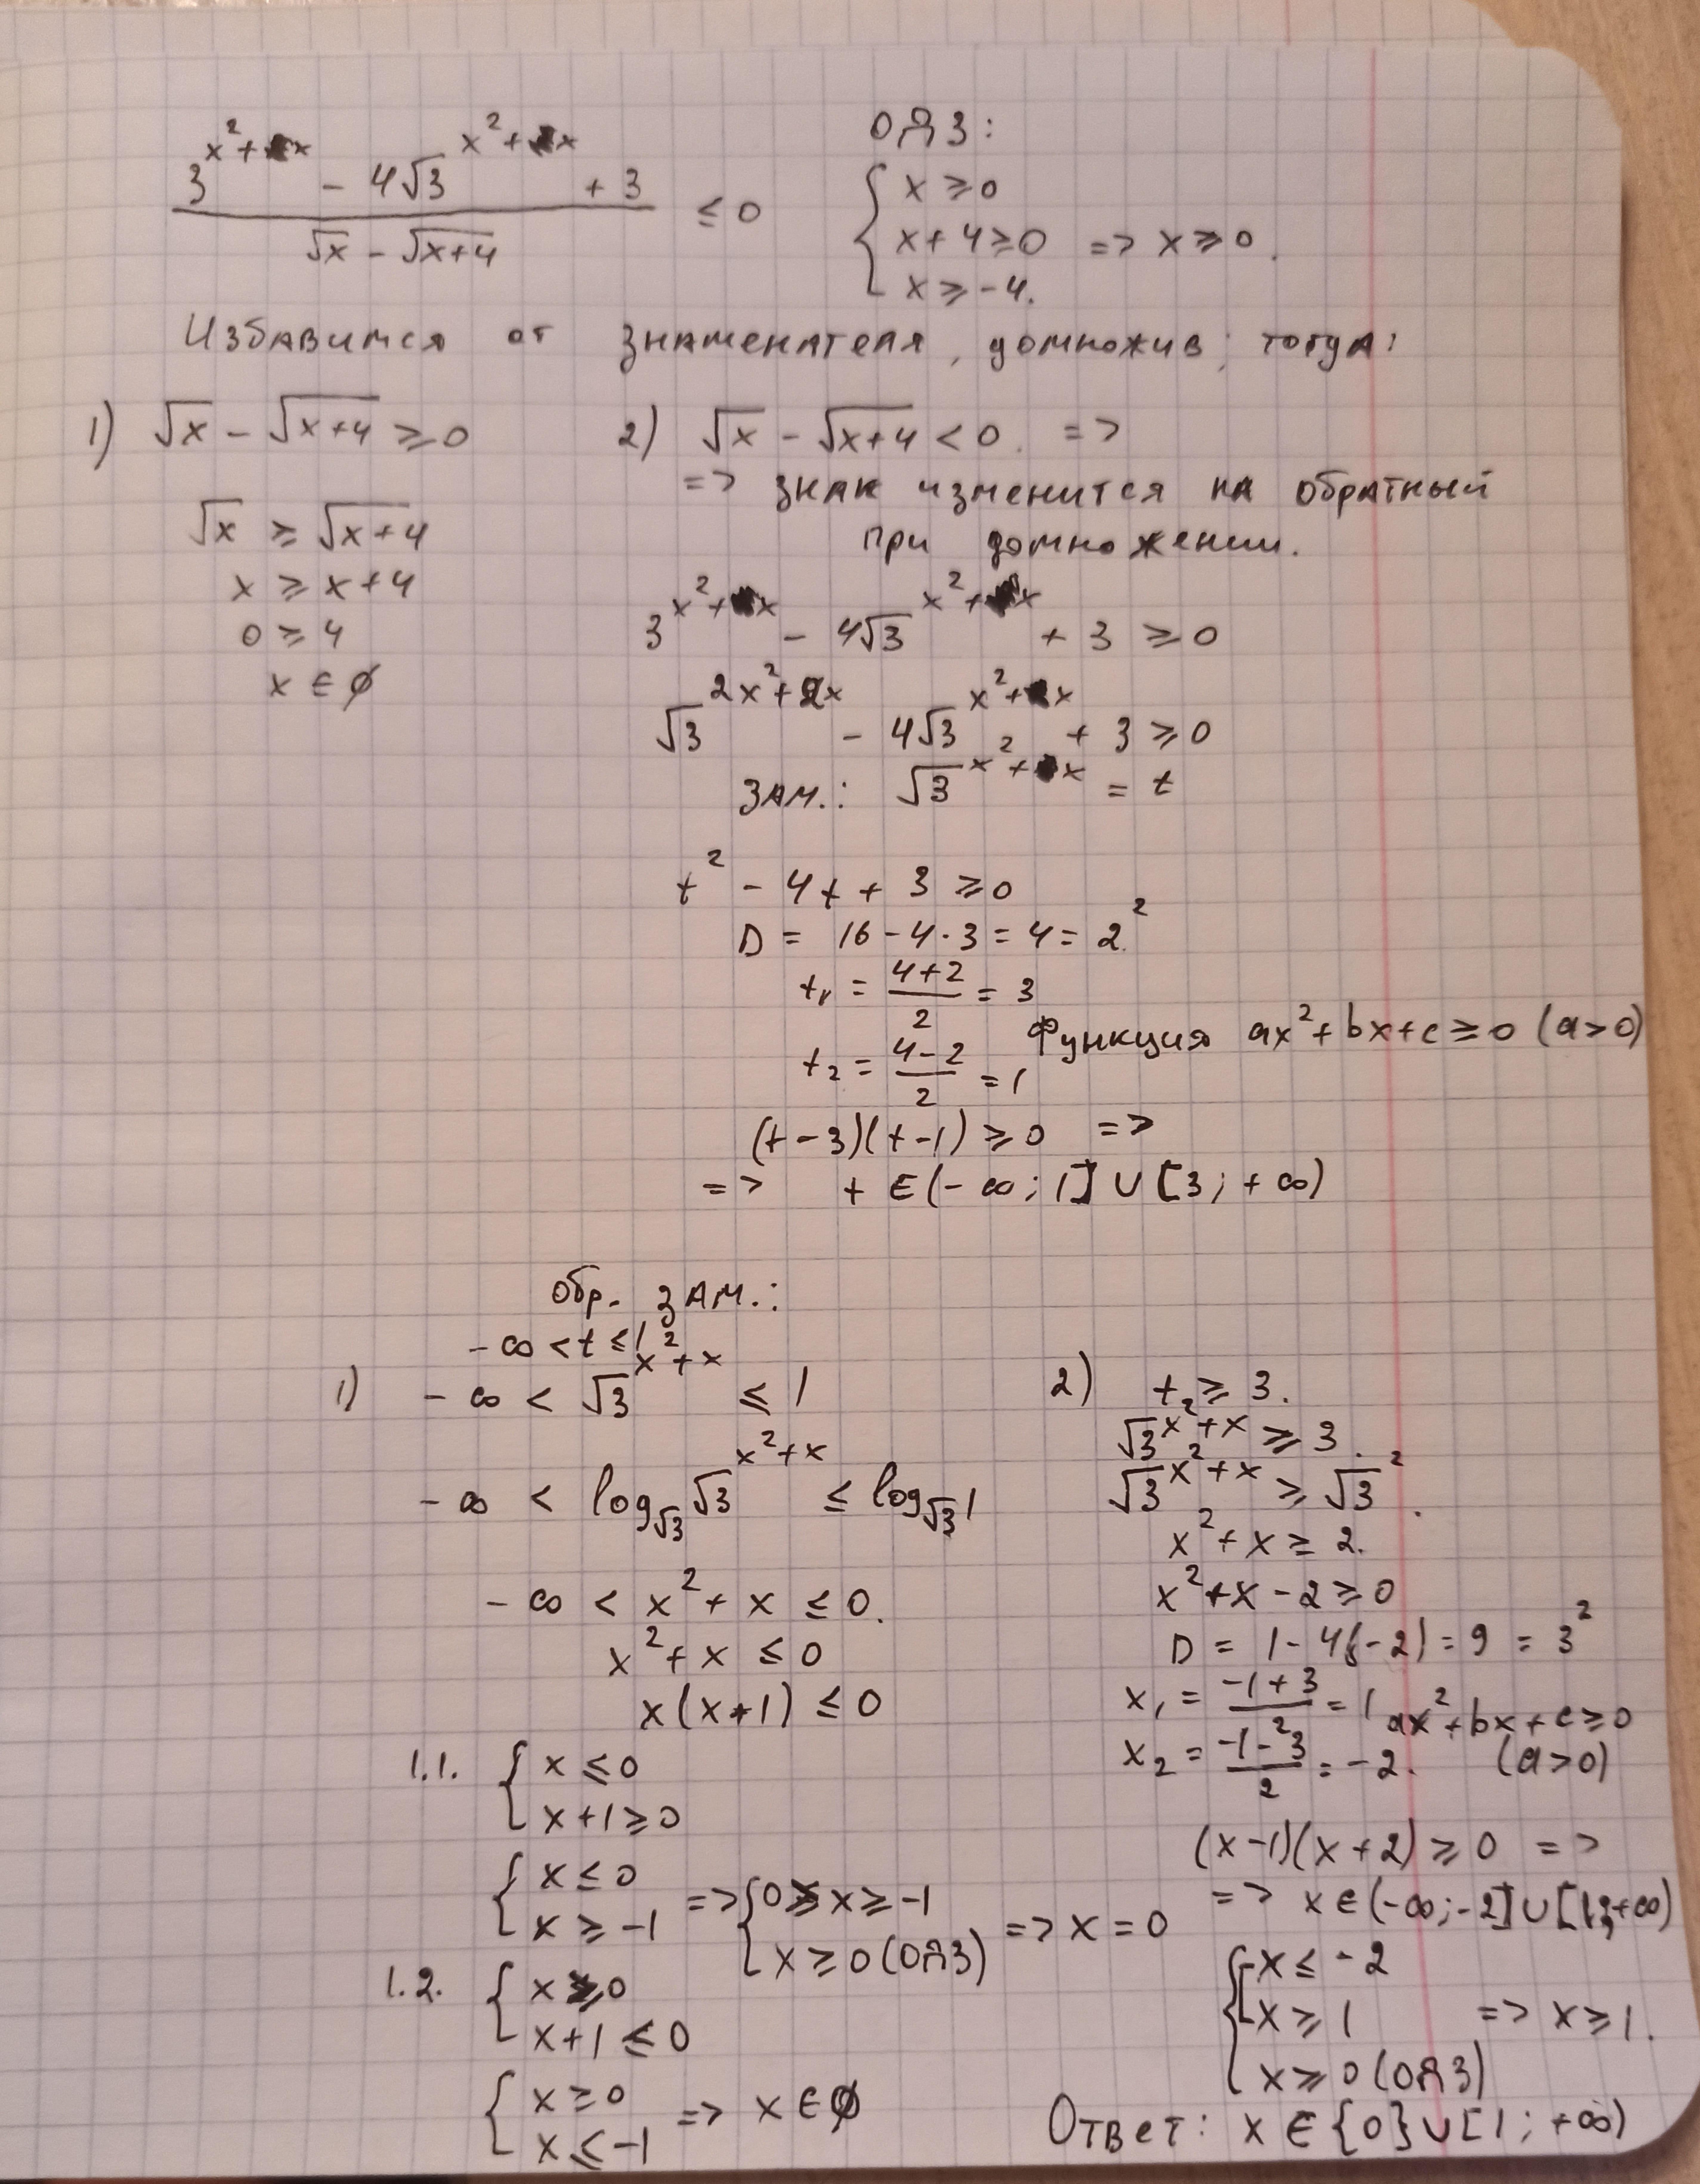 (3^(x²+x) - 4√3^(x²+x) + 3) / (√x - √(x+4)) ≤ 0
ОДЗ:
{ x ≥ 0
x+4 ≥ 0 => x ≥ 0.
x ≥ -4.
Избавимся от знаменателя, домножив; тогда:
1) √x - √(x+4) ≥ 0
√x ≥ √(x+4)
x ≥ x+4
0 ≥ 4
x ∈ ∅
2) √x - √(x+4) < 0. =>
=> знак изменится на обратный
при домножении.
3^(x²+x) - 4√3^(x²+x) + 3 ≥ 0
√3^(2x²+2x) - 4√3^(x²+x) + 3 ≥ 0
Зам.: √3^(x²+x) = t
t² - 4t + 3 ≥ 0
D = 16 - 4·3 = 4 = 2².
t₁ = (4+2)/2 = 3
t₂ = (4-2)/2 = 1
Функция ax²+bx+c ≥ 0 (a>0)
(t-3)(t-1) ≥ 0 =>
=> t ∈ (-∞; 1] ∪ [3; +∞)
Обр. зам.:
-∞ < t ≤ 1
1) -∞ < √3^(x²+x) ≤ 1
-∞ < log_√3 √3^(x²+x) ≤ log_√3 1
-∞ < x² + x ≤ 0.
x² + x ≤ 0
x(x+1) ≤ 0
1.1. { x ≤ 0
x+1 ≥ 0
{ x ≤ 0
x ≥ -1 => { 0 ≥ x ≥ -1
x ≥ 0 (ОДЗ) => x = 0
1.2. { x ≥ 0
x+1 ≤ 0
{ x ≥ 0
x ≤ -1 => x ∈ ∅
2) t₂ ≥ 3.
√3^(x²+x) ≥ 3.
√3^(x²+x) ≥ √3².
x² + x ≥ 2.
x² + x - 2 ≥ 0
D = 1 - 4(-2) = 9 = 3²
x₁ = (-1+3)/2 = 1
x₂ = (-1-3)/2 = -2.
ax²+bx+c ≥ 0
(a>0)
(x-1)(x+2) ≥ 0 =>
=> x ∈ (-∞; -2] ∪ [1; +∞)
{ [ x ≤ -2
x ≥ 1 => x ≥ 1.
x ≥ 0 (ОДЗ)
Ответ: x ∈ {0} ∪ [1; +∞)